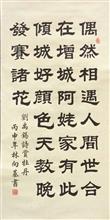 偶然相遇人間世合
在增城阿姥家有此
傾城好顏色天教晚
發賽諸花
劉禹錫詩賞牡丹
丙申年林向基書